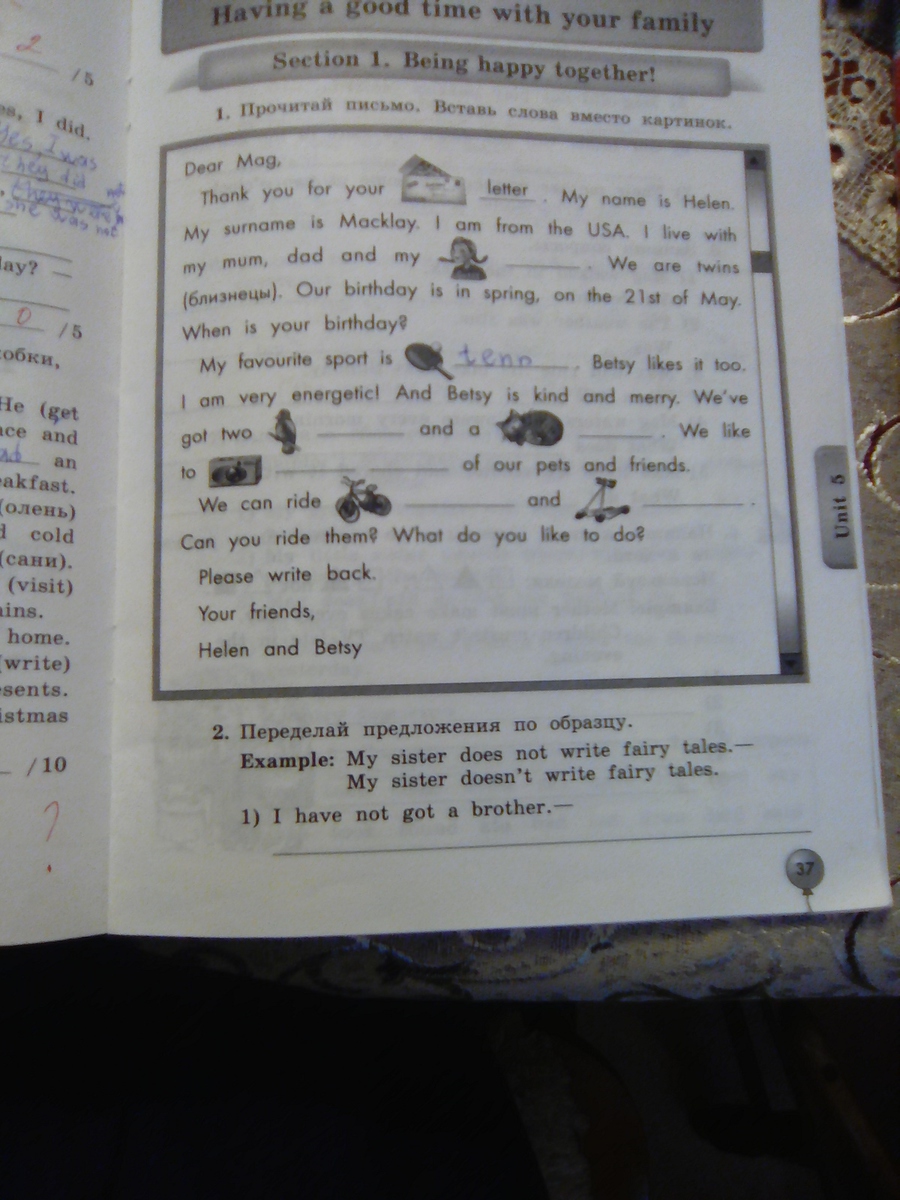 2
/5
es, I did.
Yes I was
they did
they was
she was not
day?
0 /5
кобки,
He (get
nce and
an
eakfast.
(олень)
d cold
(сани).
(visit)
ains.
home.
(write)
esents.
istmas
/10
?
Having a good time with your family
Section 1. Being happy together!
1. Прочитай письмо. Вставь слова вместо картинок.
Dear Mag,
Thank you for your letter . My name is Helen.
My surname is Macklay. I am from the USA. I live with
my mum, dad and my . We are twins
(близнецы). Our birthday is in spring, on the 21st of May.
When is your birthday?
My favourite sport is tenn . Betsy likes it too.
I am very energetic! And Betsy is kind and merry. We've
got two and a . We like
to of our pets and friends.
We can ride and .
Can you ride them? What do you like to do?
Please write back.
Your friends,
Helen and Betsy
Unit 5
2. Переделай предложения по образцу.
Example: My sister does not write fairy tales.—
My sister doesn't write fairy tales.
1) I have not got a brother.—
37